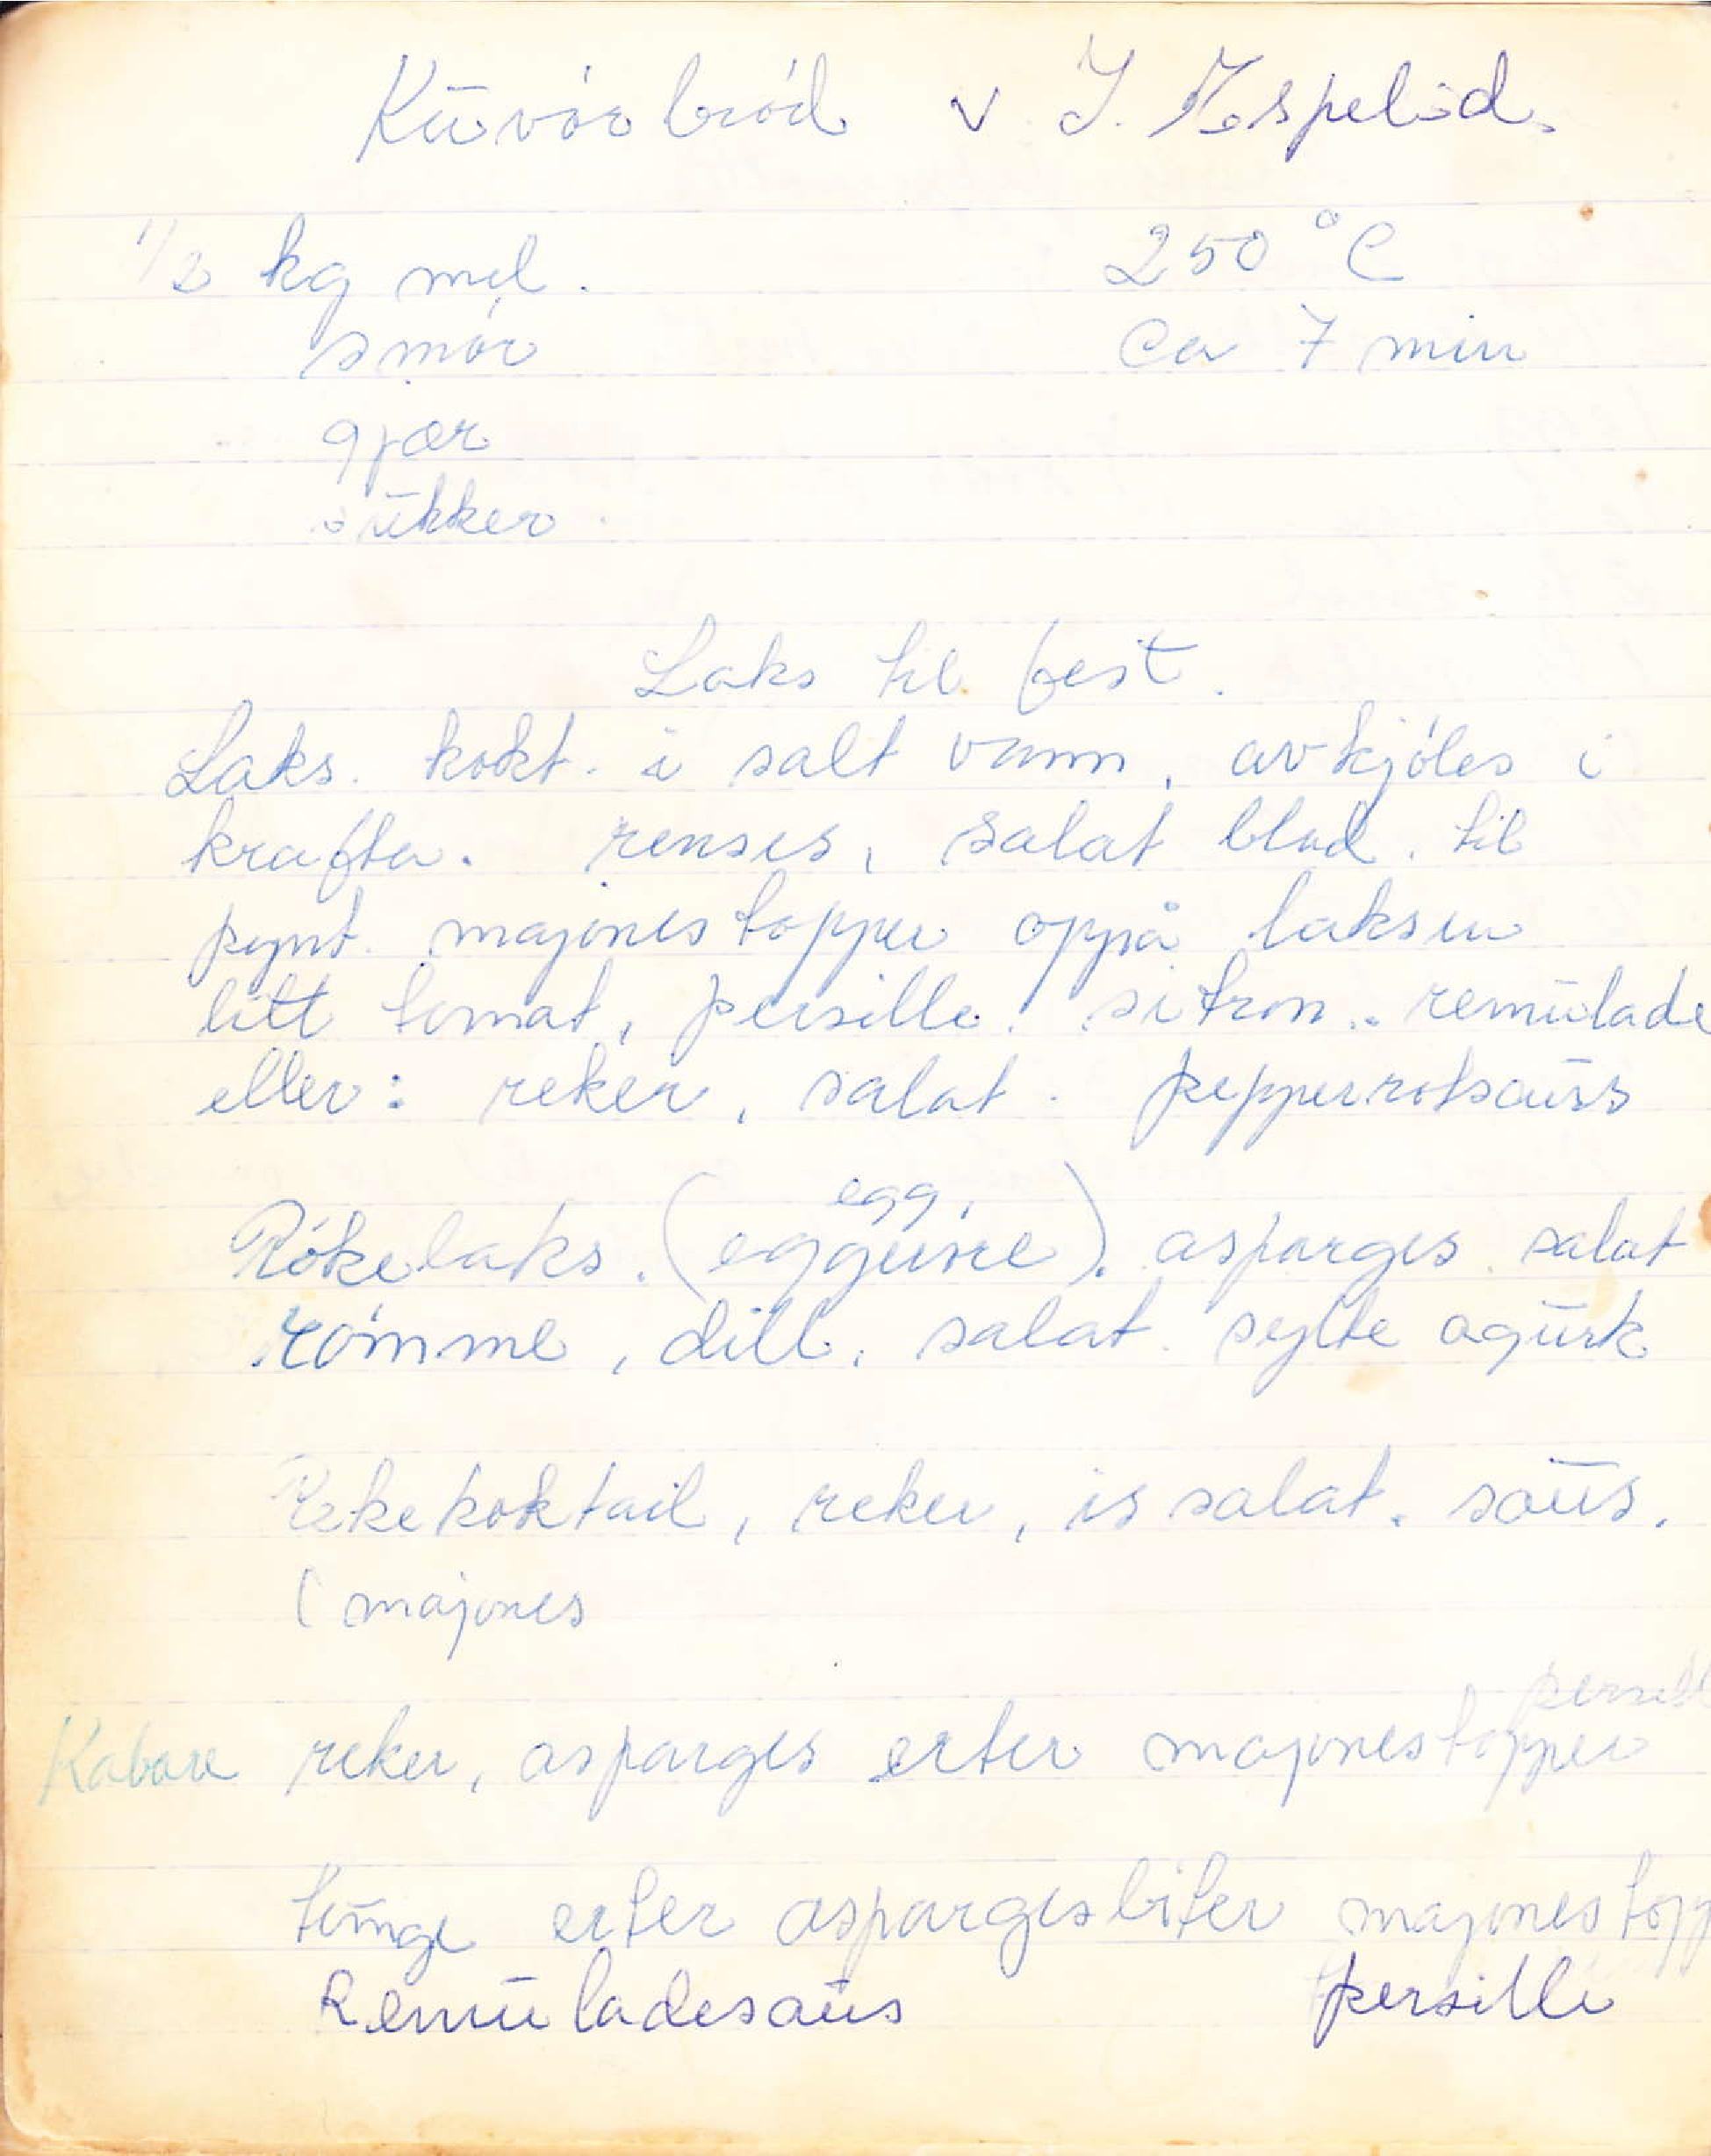 Kuvørbrød v J. Espelid.
1/2 kg mel. 250 °C
smør Ca 7 min
gjær
sukker.
Laks til fest.
Laks. kokt. i salt vann, avkjøles i
krafta. renses, salat blad. til
pynt. majones topper oppå laksen
litt tomat, persille. sitron.. remulade
eller: reker, salat. pepperrotsauss
egg,
Røkelaks. (eggerøre). asparges. salat
rømme, dill, salat. sylte agurk
Rekekoktail, reker, is salat. saus.
( majones
persill
Kabare reker, asparges erter majonestopper
tunge erter aspargesbiter majones topp
Remuladesaus persille